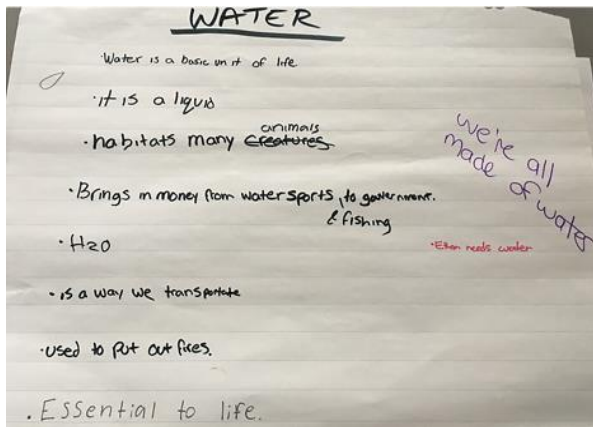 WATER
·Water is a basic unit of life
·it is a liquid
animals
·habitats many creatures
·Brings in money from watersports, to government.
& fishing
·H2O
·is a way we transportate
·used to put out fires.
·Essential to life.
we're all
made of water
·Ethan needs water